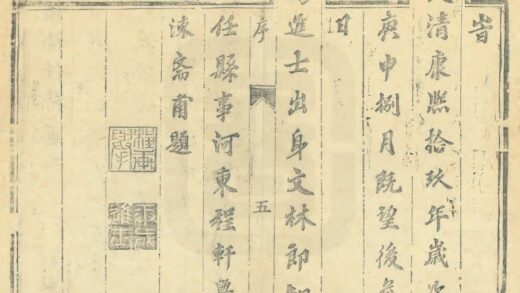 旹
清康熙拾玖年歲次
庚申捌月既望後
日
進士出身文林郎知
序 五
任縣事河東程軒舉
涑斋甫題